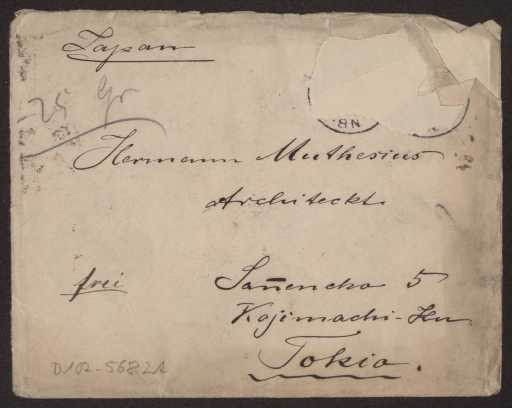 Japan
25 Gr
8N
Hermann Muthesius
Architeckt.
frei
Sanencho 5
Kojimachi-Ku
Tokio.
D102-5682A